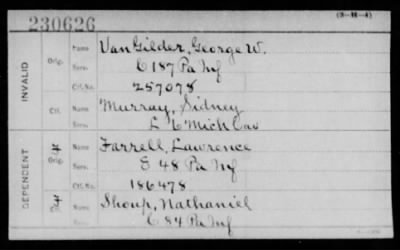 230626
(3-H-4)
INVALID
Orig.
Name
Van Gilder, George W.
Serv.
C 187 Pa Inf
Ctf. No.
257078
Ctf.
Name
Murray, Sidney
Serv.
L 6 Mich Cav
DEPENDENT
Orig.
Name
Farrell, Lawrence
Serv.
E 48 Pa Inf
Ctf. No.
186478
Ctf.
Name
Shoup, Nathaniel
Serv.
C 84 Pa Inf